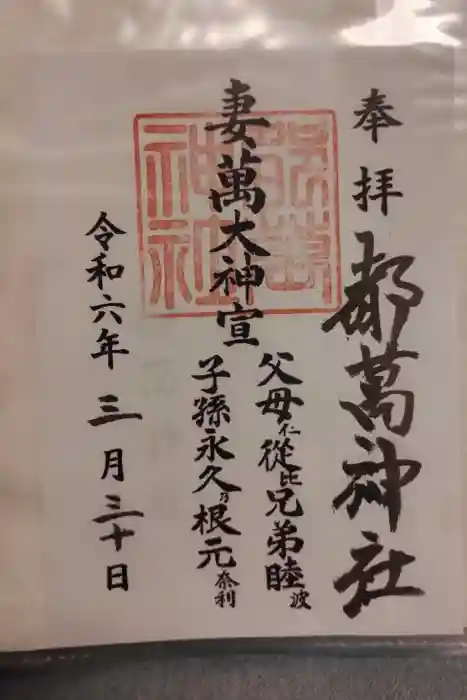 奉拝 都萬神社
妻萬大神宣
父母仁從比兄弟睦波
子孫永久乃根元奈利
令和六年 三月三十日